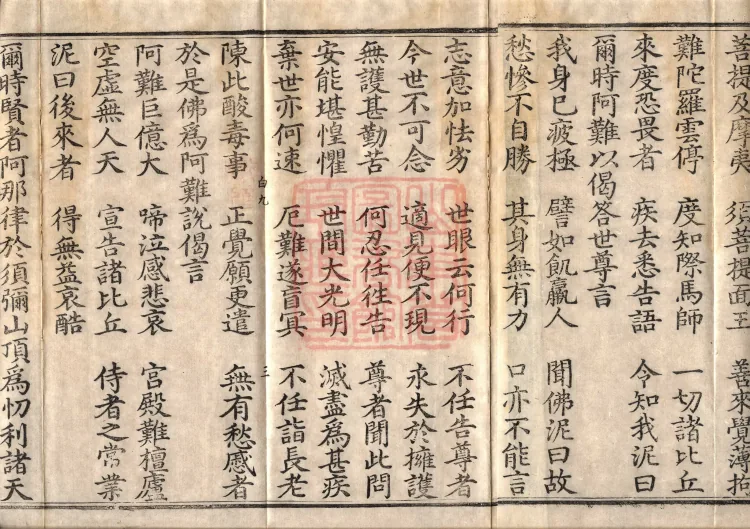 菩提及摩夷 須菩提面王 善來覺薄拘
難陀羅雲停 度知際馬師 一切諸比丘
來度恐畏者 疾去悉告語 令知我泥曰
爾時阿難以偈答世尊言
我身已疲極 譬如飢羸人 聞佛泥曰故
愁慘不自勝 其身無有力 口亦不能言
志意加怯劣 世眼云何行 不任告尊者
今世不可念 適見便不現 永失於擁護
無護甚勤苦 何忍任往告 尊者聞此問
安能堪惶懼 世間大光明 滅盡為甚疾
棄世亦何速 厄難遂盲冥 不任詣長老
陳此酸毒事 正覺願更遣 無有愁慼者
白九 三
於是佛為阿難說偈言
阿難巨億大 啼泣感悲哀 宮殿難檀廬
空虛無人天 宣告諸比丘 侍者之常業
泥曰後來者 得無益哀酷
爾時賢者阿那律於須彌山頂為忉利諸天